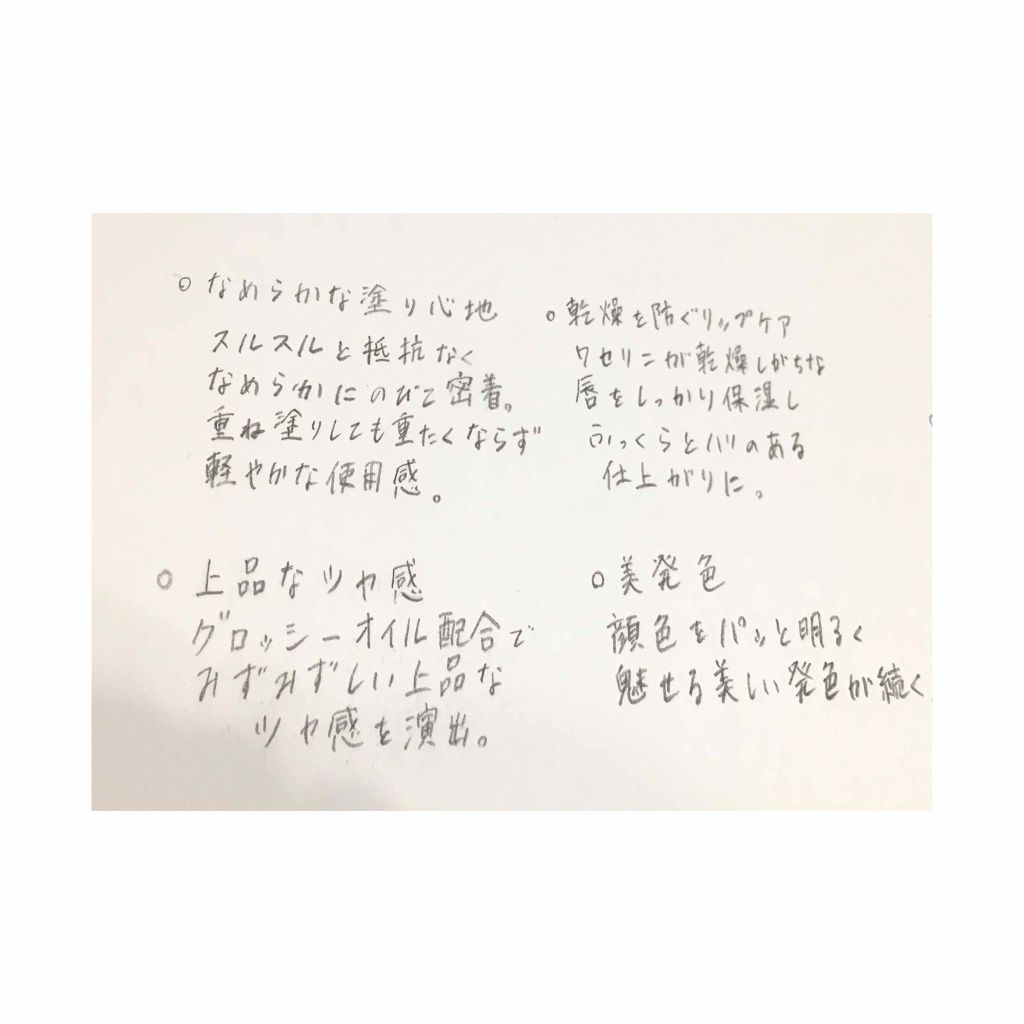 ○ なめらかな塗り心地
スルスルと抵抗なく
なめらかにのびて密着。
重ね塗りしても重たくならず
軽やかな使用感。
○ 乾燥を防ぐリップケア
ワセリンが乾燥しがちな
唇をしっかり保湿し
ふっくらとハリのある
仕上がりに。
○ 上品なツヤ感
グロッシーオイル配合で
みずみずしい上品な
ツヤ感を演出。
○ 美発色
顔色をパッと明るく
魅せる美しい発色が続く